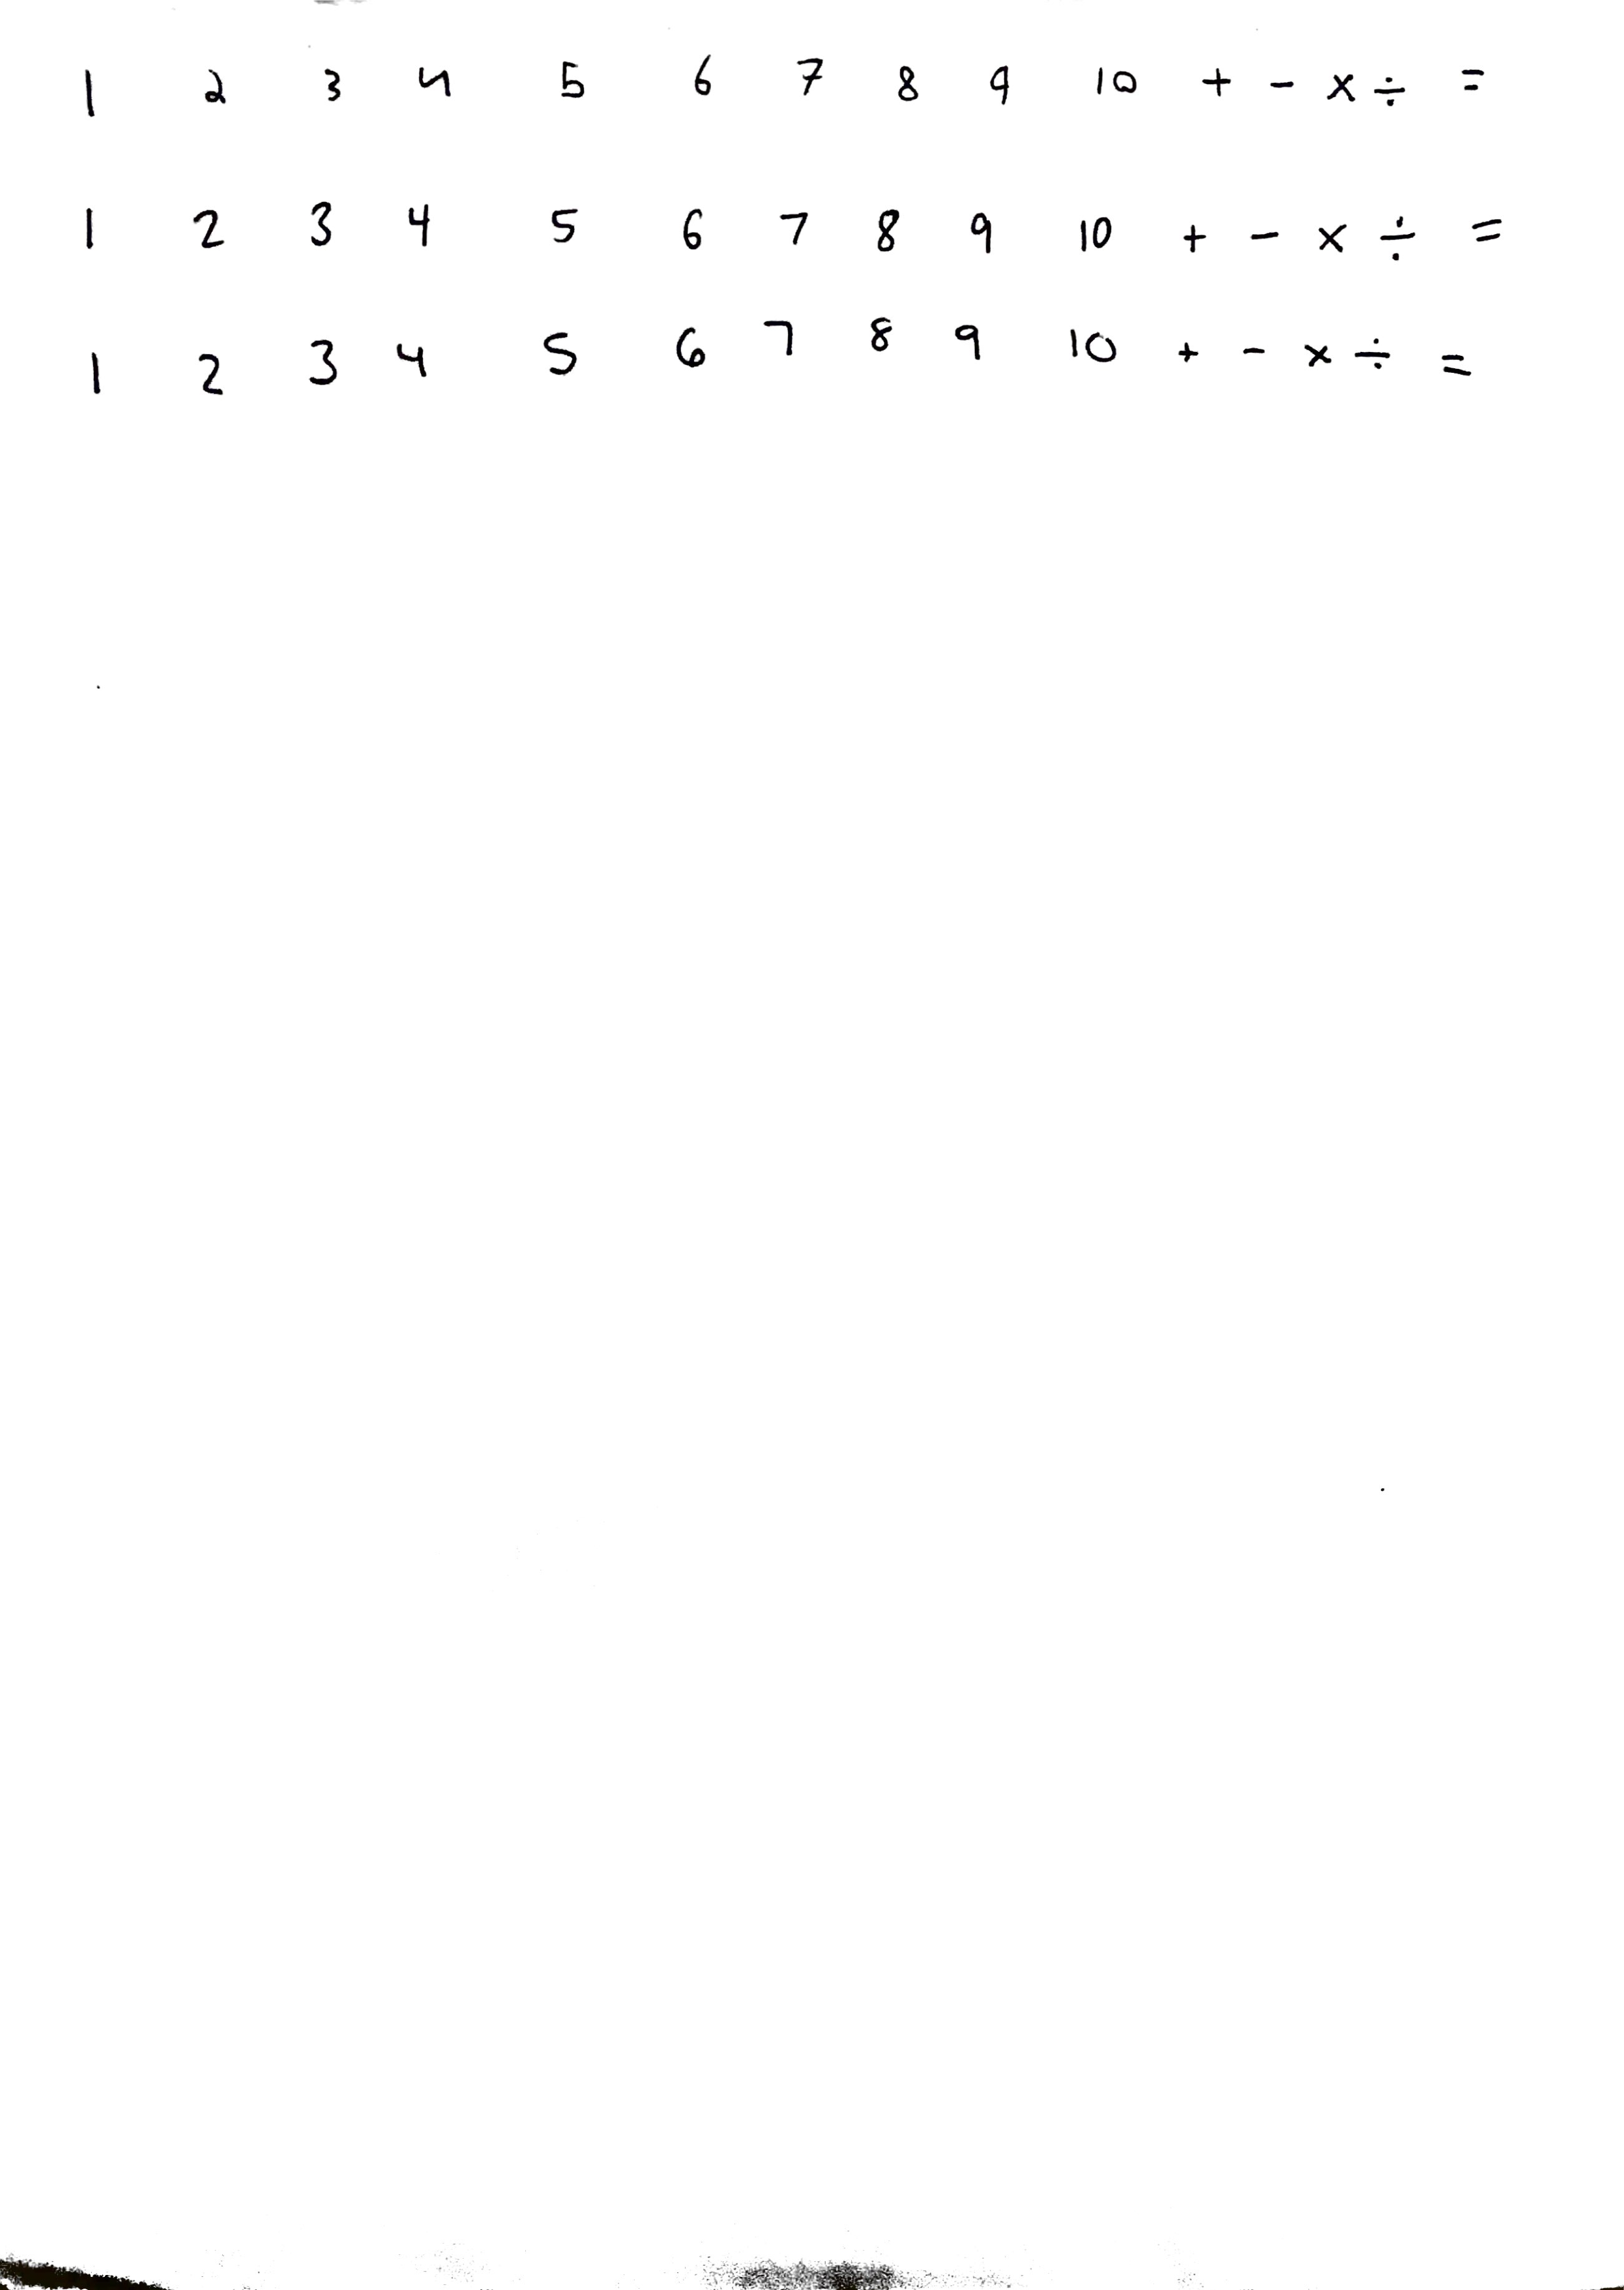 1 2 3 4 5 6 7 8 9 10 + - × ÷ =
1 2 3 4 5 6 7 8 9 10 + - × ÷ =
1 2 3 4 5 6 7 8 9 10 + - × ÷ =